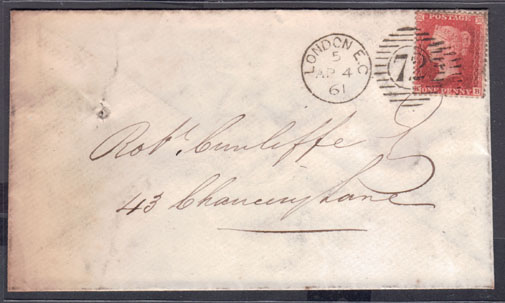 POSTAGE
ONE PENNY
LONDON E.C
5
AP 4
61
72
Robt. Cunliffe
43 Chancery Lane